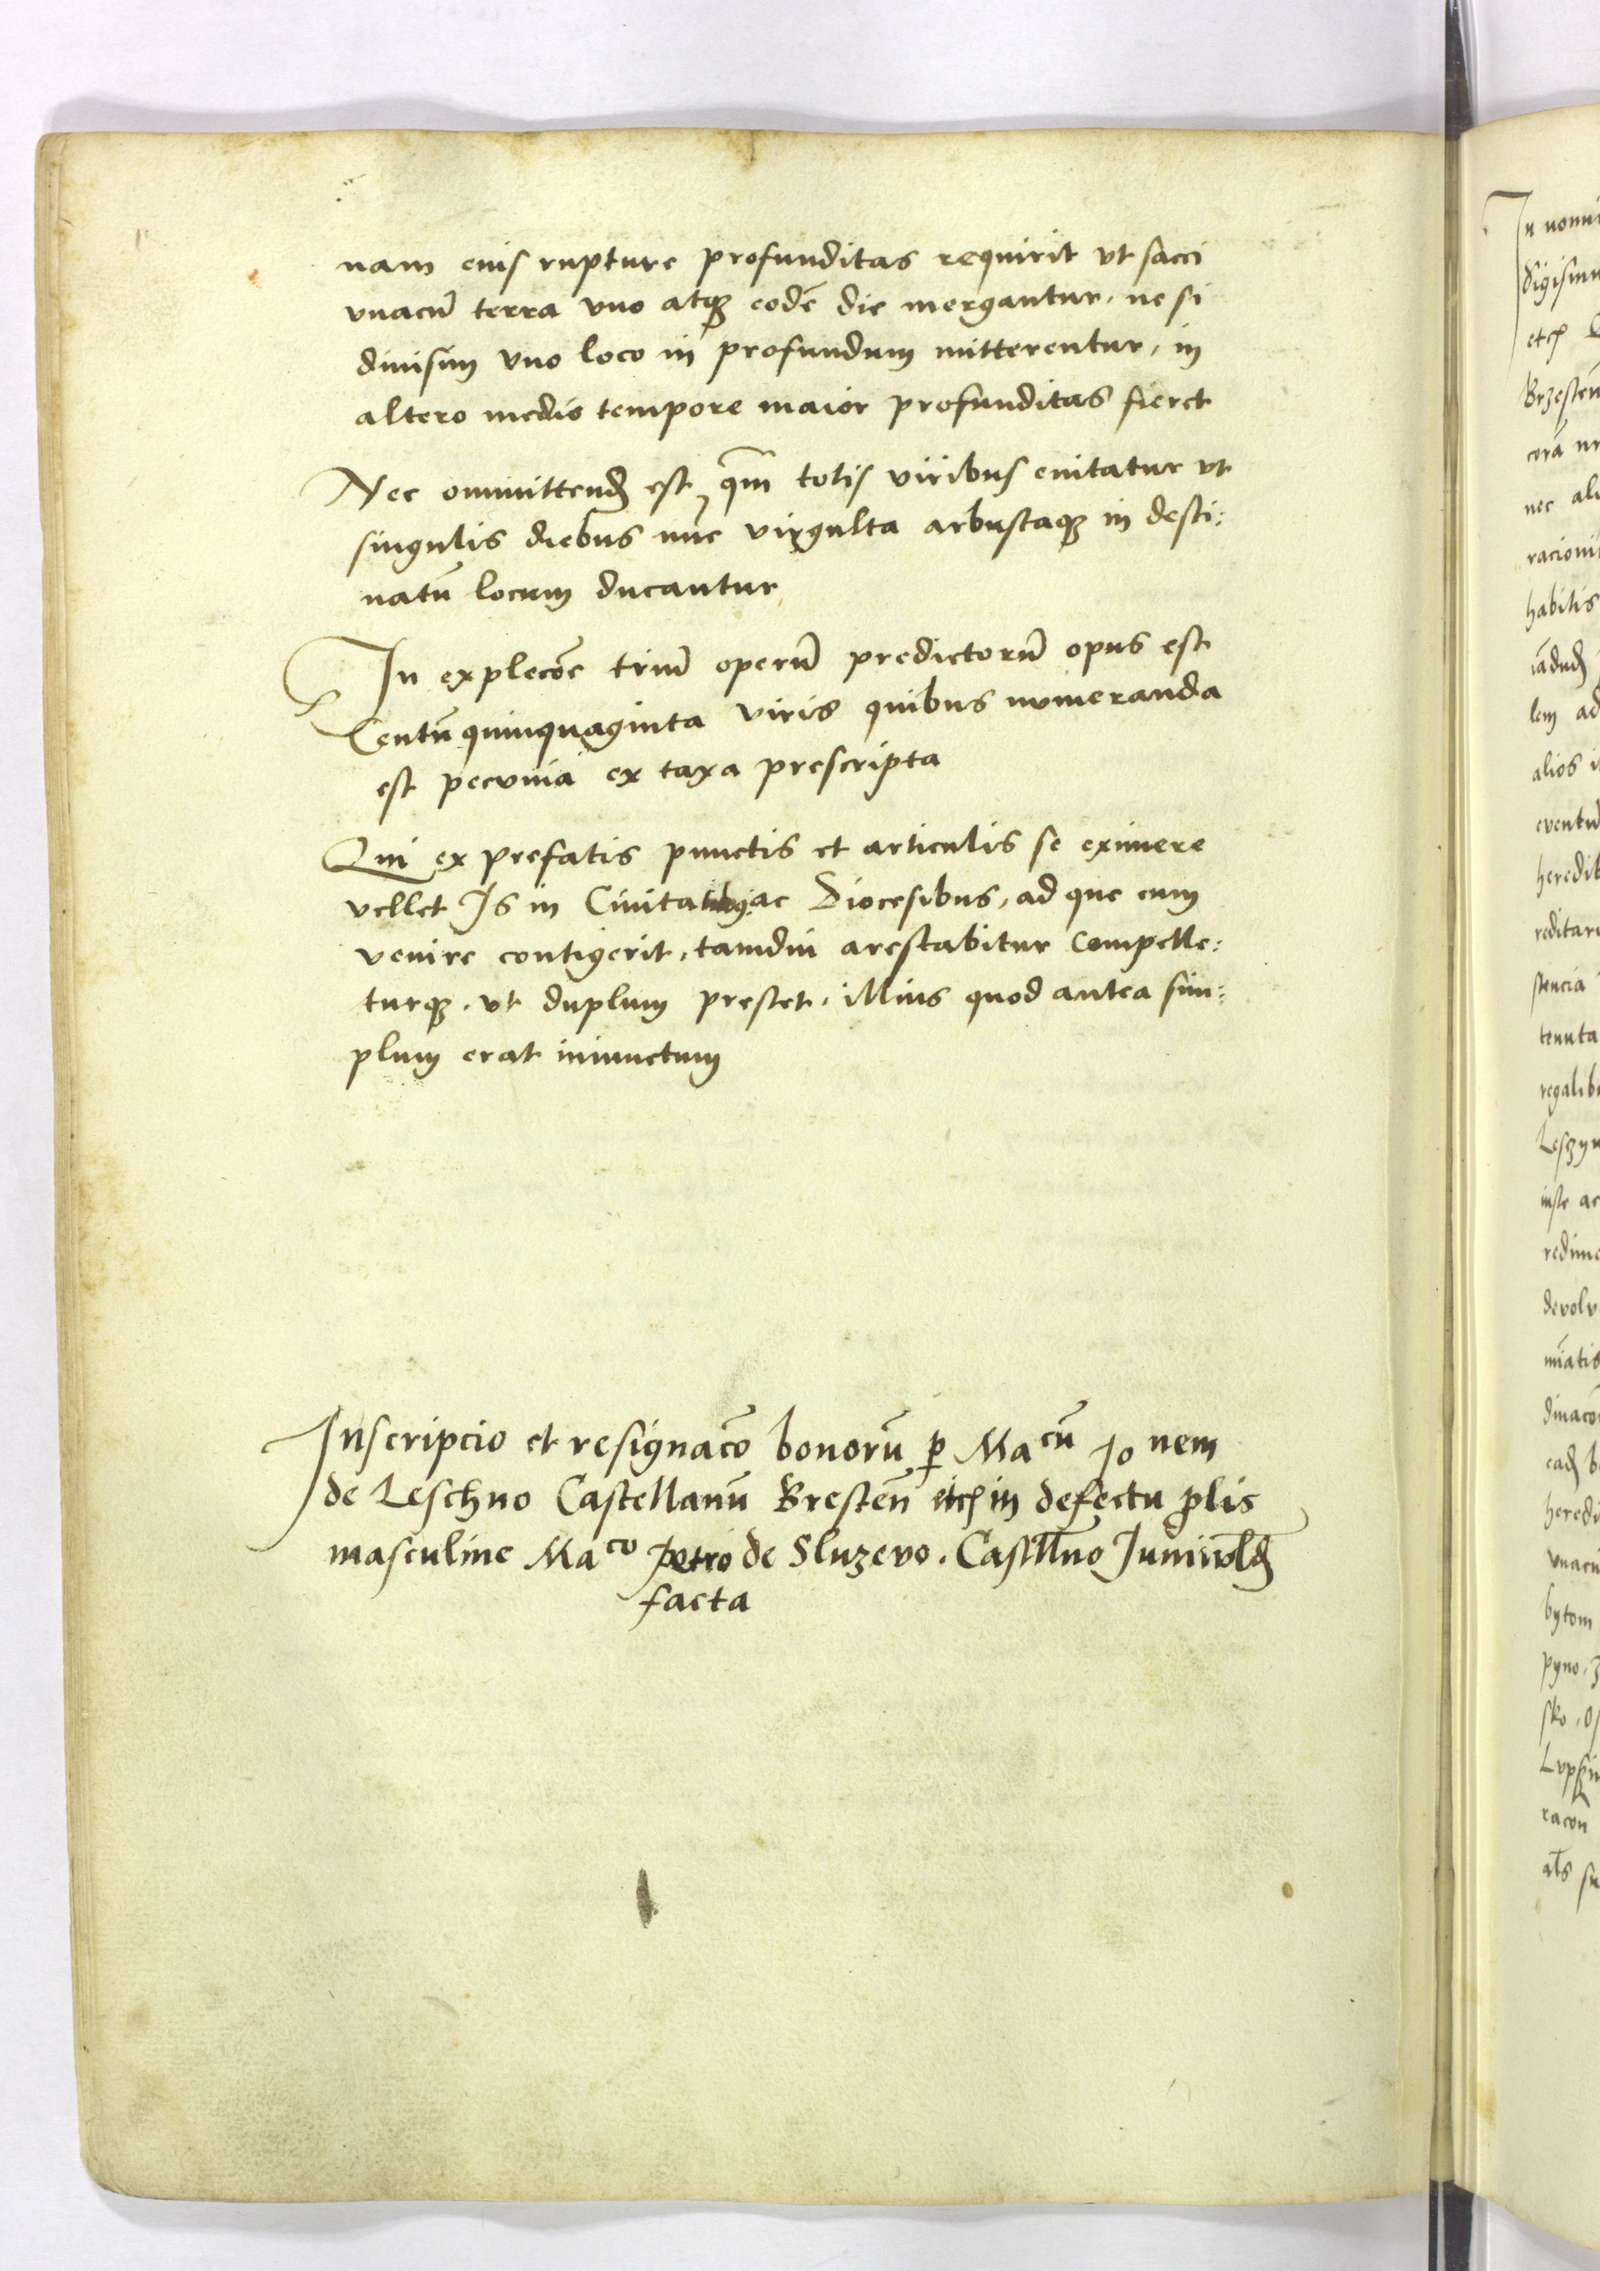 nam eius rupture profunditas requirit vt sacci
vnacũ terra vno atqȝ eodẽ die mergantur, ne si
diuisim vno loco in profundum mitterentur, in
altero medio tempore maior profunditas fieret
Nec ommittendȝ est, qm̃ totis viribus enitatur vt
singulis diebus nuc virgulta arbustaqȝ in desti:
natũ locum ducantur
In explecõe triũ operũ predictorũ opus est
Centũ quinquaginta viris quibus numeranda
est pecunia ex taxa prescripta
Qui ex prefatis punctis et articulis se eximere
vellet Is in Ciuitatibus ac Diocesibus, ad que eum
venire contigerit, tamdiu arestabitur Compelle:
turqȝ. vt duplum prestet. illius quod antea sim:
plum erat iniunctum
Inscripcio et resignacõ bonorũ p Macũ Jo nem
de Leschno Castellanũ Brestẽn etc in defectu prolis
masculine Maco Petro de Sluzevo. Castllno Juniwldȝ
facta
In nomi
Sigismu
etc
Brzestẽn
corã nr
nec ali
racioni
habitis
lem ad
alios i
eventu
heredit
reditari
stencia
tenuta
regalib
Leszyn
iuste ac
redime
devolv
diuacõ
eadȝ b
heredi
vnacũ
bytom
pyno, Z
sko, Os
Lupszin
racõn
als su